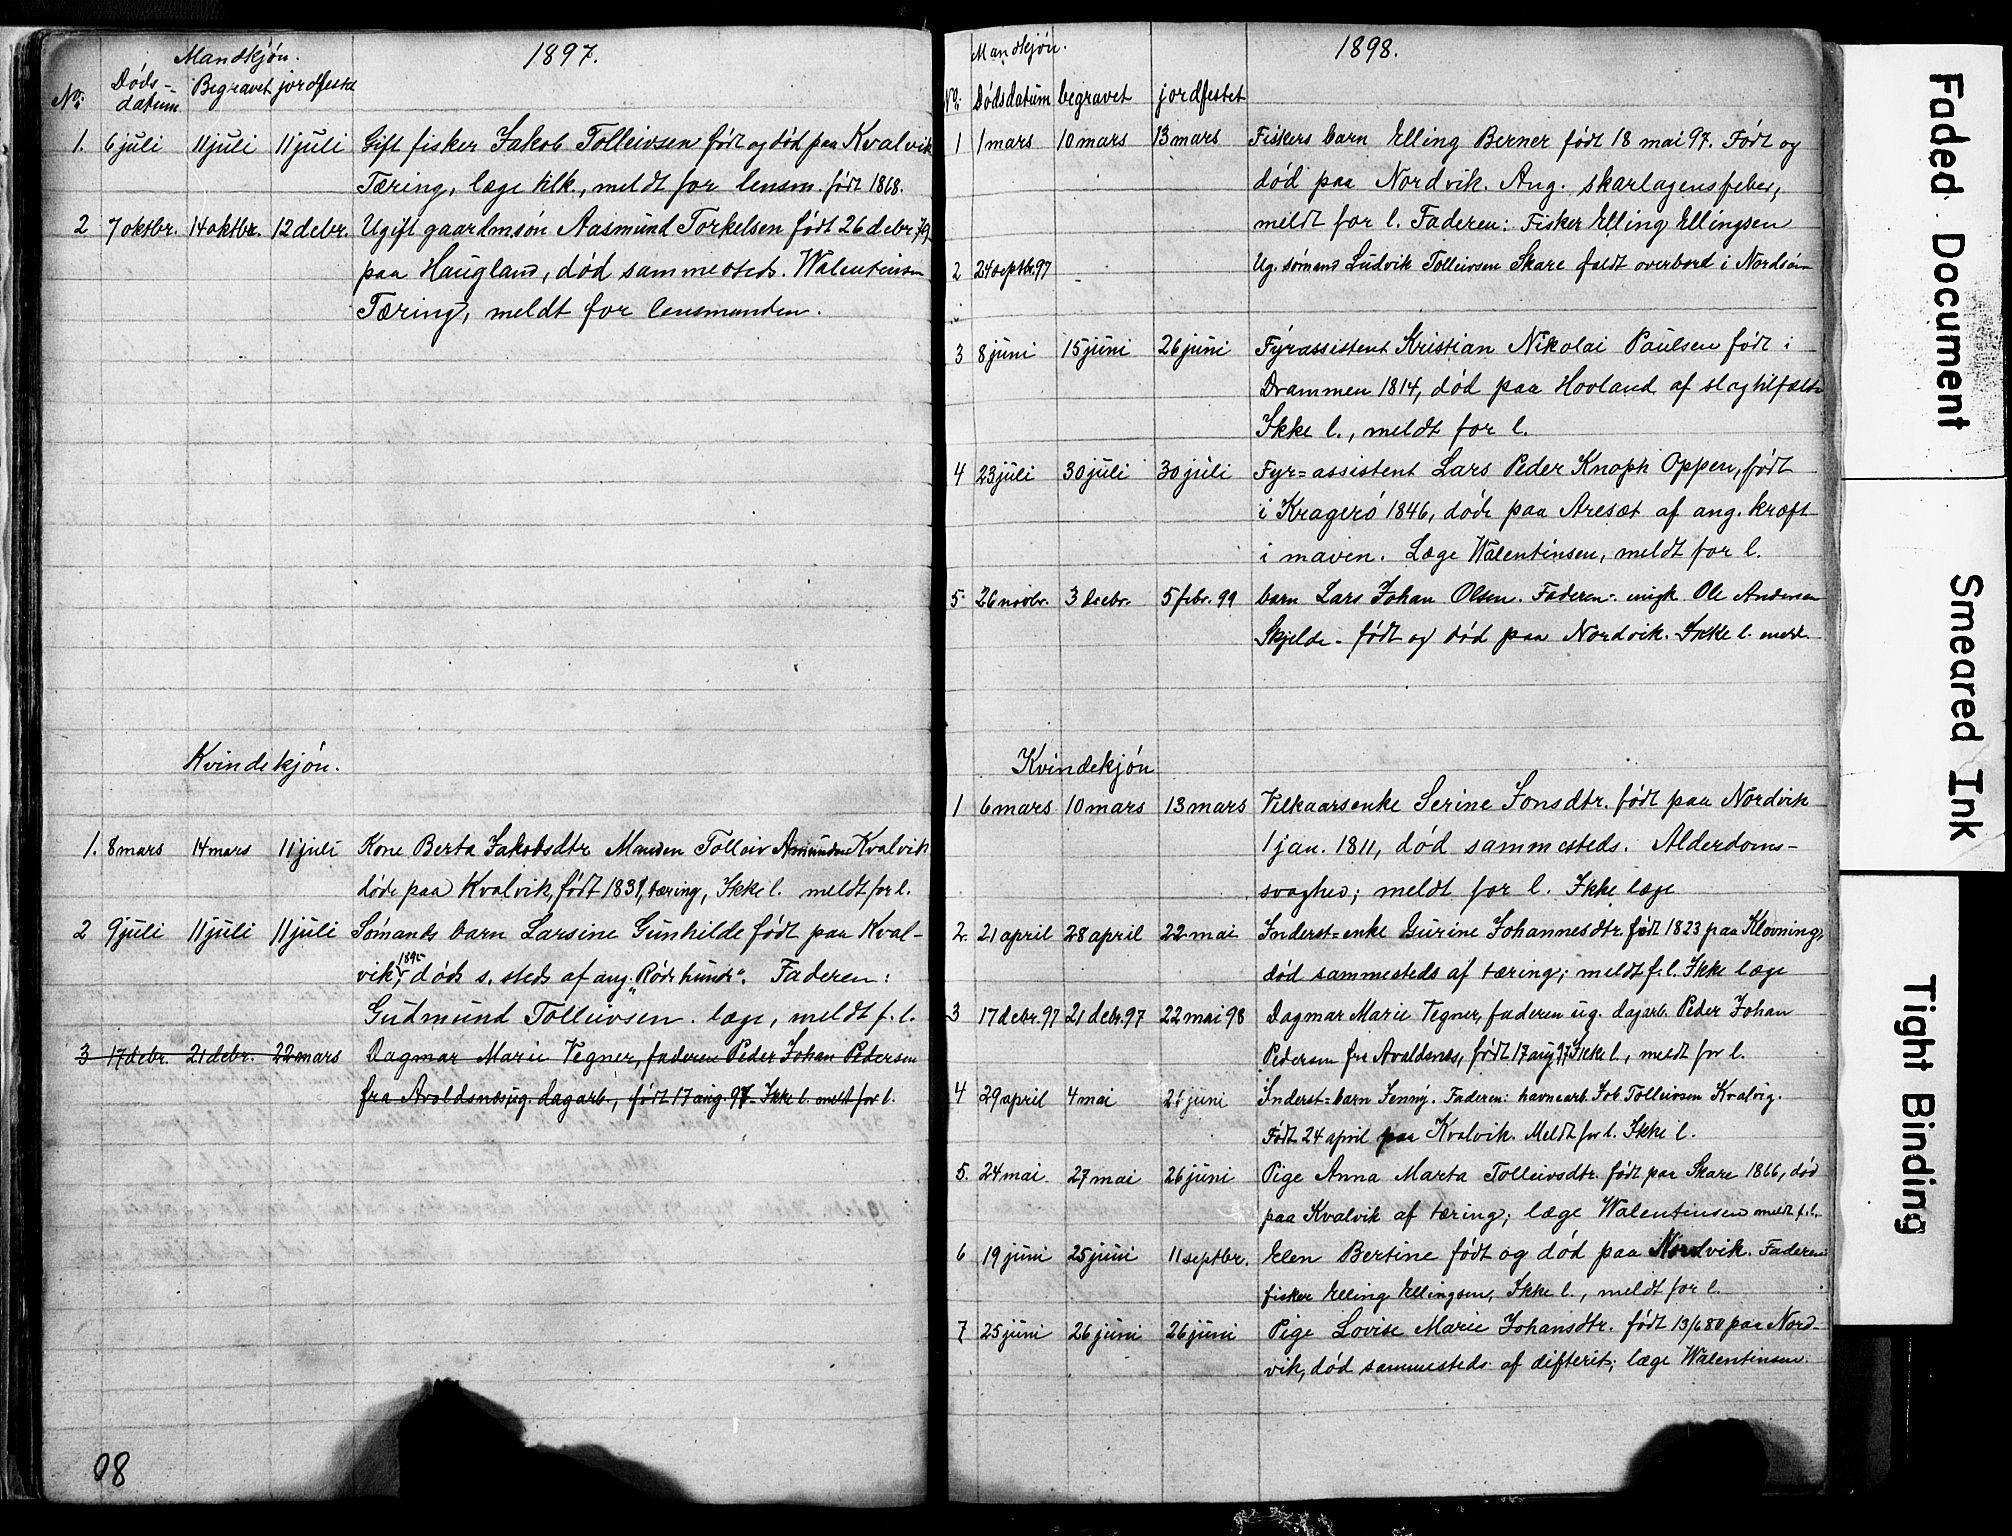 Mandkjøn.
1897.
No. Døds-datum. Begravet jordfeste
1. 6 juli 11 juli 11 juli Gift fisker Jakob Tolleivsen født og død paa Kvalvik
Tæring, læge tilk., meldt for lensm. født 1868.
2 7 oktbr. 14 oktbr. 12 debr. Ugift gaardmsøn Aasmund Torkelsen født 26 debr 79
paa Haugland, død sammesteds. Walentinsen
Tæring, meldt for lensmanden.
Kvindekjøn.
1. 8 mars 14 mars 11 juli Kone Berta Jakobsdtr Manden Tolleiv Amundsen Kvalvik
døde paa Kvalvik, født 1831, tæring, Ikke l. meldt for l.
2 9 juli 11 juli 11 juli Sømands barn Larsine Gunhilde født paa Kval-
vik, død s. steds af ang. "Røde hunde". Faderen:
Gudmund Tolleivsen. læge, meldt f. l.
3 17 debr. 21 debr. 22 mars Dagmar Marie Vegner, faderen Peder Johan Pedersen
fra Avaldsnes, ug. dagarb., født 17 aug. 97. Ikke l. meldt for l.
08
Mandkjøn.
1898.
No. Dødsdatum begravet jordfestet
1 1 mars 10 mars 13 mars Fiskers barn Elling Berner født 18 mai 97. Født og
død paa Nordvik. Ang. skarlagensfeber,
meldt for l. Faderen: Fisker Elling Ellingsen
2 24 septbr. 97 Ug. sømand Ludvik Tolleivsen Skare faldt overbord i Nordsøen
3 8 juni 15 juni 26 juni Fyrassistent Kristian Nikolai Paulsen født i
Drammen 1814, død paa Hovland af slagtilfælde
Ikke l., meldt for l.
4 23 juli 30 juli 30 juli Fyr=assistent Lars Peder Knoph Oppen, født
i Kragerø 1846, døde paa Aresæt af ang. kræft
i maven. Læge Walentinsen, meldt for l.
5 26 novbr. 3 debr. 5 febr. 99 barn Lars Johan Olsen. Faderen: Ole Andersen
Skjelde - født og død paa Nordvik. Ikke l. meldt
Kvindekjøn
1 6 mars 10 mars 13 mars Vilkaarsenke Serine Jonsdtr. født paa Nordvik
1 jan. 1811, død sammesteds. Alderdoms-
svaghed; meldt for l. Ikke læge
2. 21 april 28 april 22 mai Inderst=enke Gurine Johannesdtr. født 1823 paa Kløvning,
død sammesteds af tæring; meldt f. l. Ikke læge
3 17 debr. 97 21 debr. 97 22 mai 98 Dagmar Marie Vegner, faderen ug. dagarb. Peder Johan
Pedersen fra Avaldsnes, født 17 aug 97 Ikke l., meldt for l.
4 29 april 4 mai 26 juni Inderst=barn Jenny. Faderen: havnearb. Job Tolleivsen Kvalvig.
Født 24 april paa Kvalvik. Meldt for l. Ikke l.
5. 24 mai 27 mai 26 juni Pige Anna Marta Tolleivsdtr. født paa Skare 1866, død
paa Kvalvik af tæring; læge Walentinsen meldt f. l.
6 19 juni 25 juni 11 septbr. Elen Bertine født og død paa Nordvik. Faderen:
fisker Elling Ellingsen, Ikke l., meldt for l.
7 25 juni 26 juni 26 juni Pige Lovise Marie Johansdtr. født 13/6 80 paa Nord-
vik, død sammesteds af difterit; læge Walentinsen.
Faded Document
Smeared Ink
Tight Binding